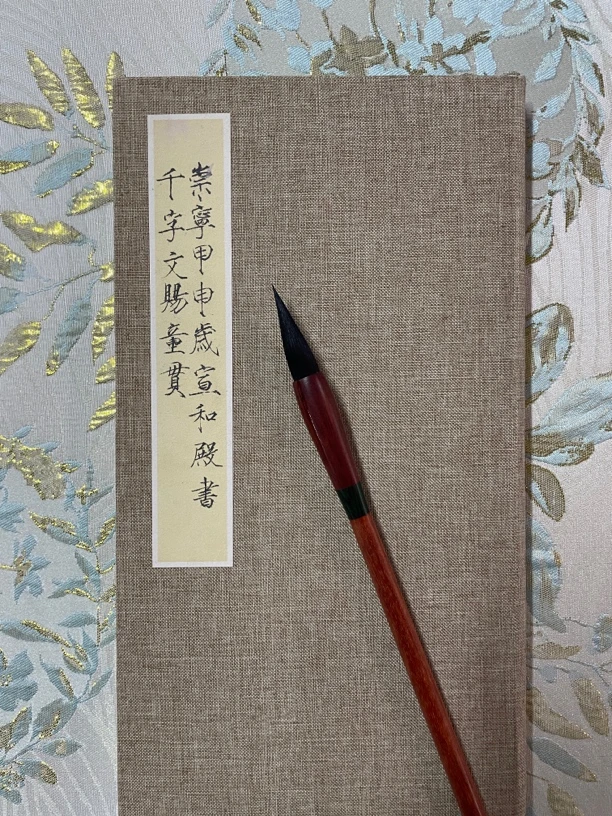 崇寧甲申歲宣和殿書
千字文賜童貫